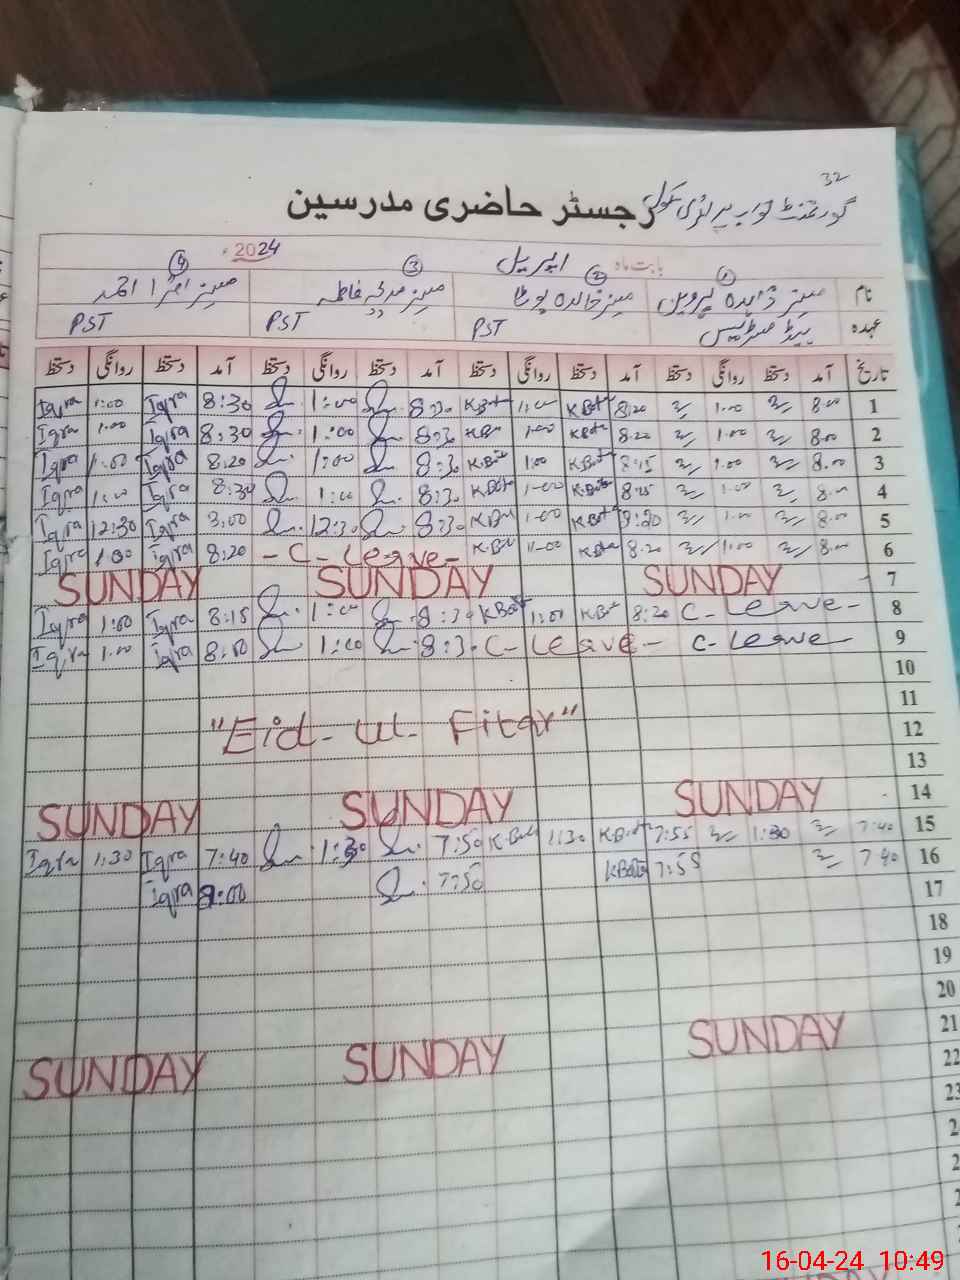 32
گورنمنٹ گرلز پرائمری سکول رجسٹر حاضری مدرسین
بابت ماہ اپریل 2024
نام ① مسز زاہدہ پروین ② مسز خالدہ ③ مسز مدیحہ فاطمہ ④ مسز اقرا احمد
عہدہ ہیڈ مسٹریس PST PST PST
تاریخ آمد دستخط روانگی دستخط آمد دستخط روانگی دستخط آمد دستخط روانگی دستخط آمد دستخط روانگی دستخط
1 8.00 1.00 8.20 K.Bota 1:00 K.Bota 8:30 1:00 8:30 Iqra 1:00 Iqra
2 8.00 1.00 8.20 K.Bota 1:00 8:30 1:00 8:30 Iqra 1.00 Iqra
3 8.00 1.00 8:15 K.Bota 1:00 K.Bota 8:30 1:00 8:20 Iqra 1:00 Iqra
4 8.00 1.00 8:25 K.Bota 1:00 K.Bota 8:30 1:00 8:30 Iqra 1:00 Iqra
5 8.00 1.00 8:20 K.Bota 1:00 8:30 12:30 Iqra 12:30 Iqra
6 8.00 1:00 8.20 K.Bota 1:00 - C - Leave - 8:20 Iqra 1:00 Iqra
7 SUNDAY SUNDAY SUNDAY
8 C - Leave - 8:20 K.Bota 1:00 K.Bota 8:30 1:00 8:15 Iqra 1:00 Iqra
9 C - Leave C - Leave - 8:30 1:00 8:00 Iqra 1:00 Iqra
10
11
12 "Eid-ul-Fitar"
13
14 SUNDAY SUNDAY SUNDAY
15 7:40 1:30 7:55 K.Bota 1:30 K.Bota 7:50 1:30 7:40 Iqra 1:30 Iqra
16 7:40 7:55 K.Bota 7:50 Iqra
17
18
19
20
21 SUNDAY SUNDAY SUNDAY
22
23
SUNDAY
16-04-24 10:49